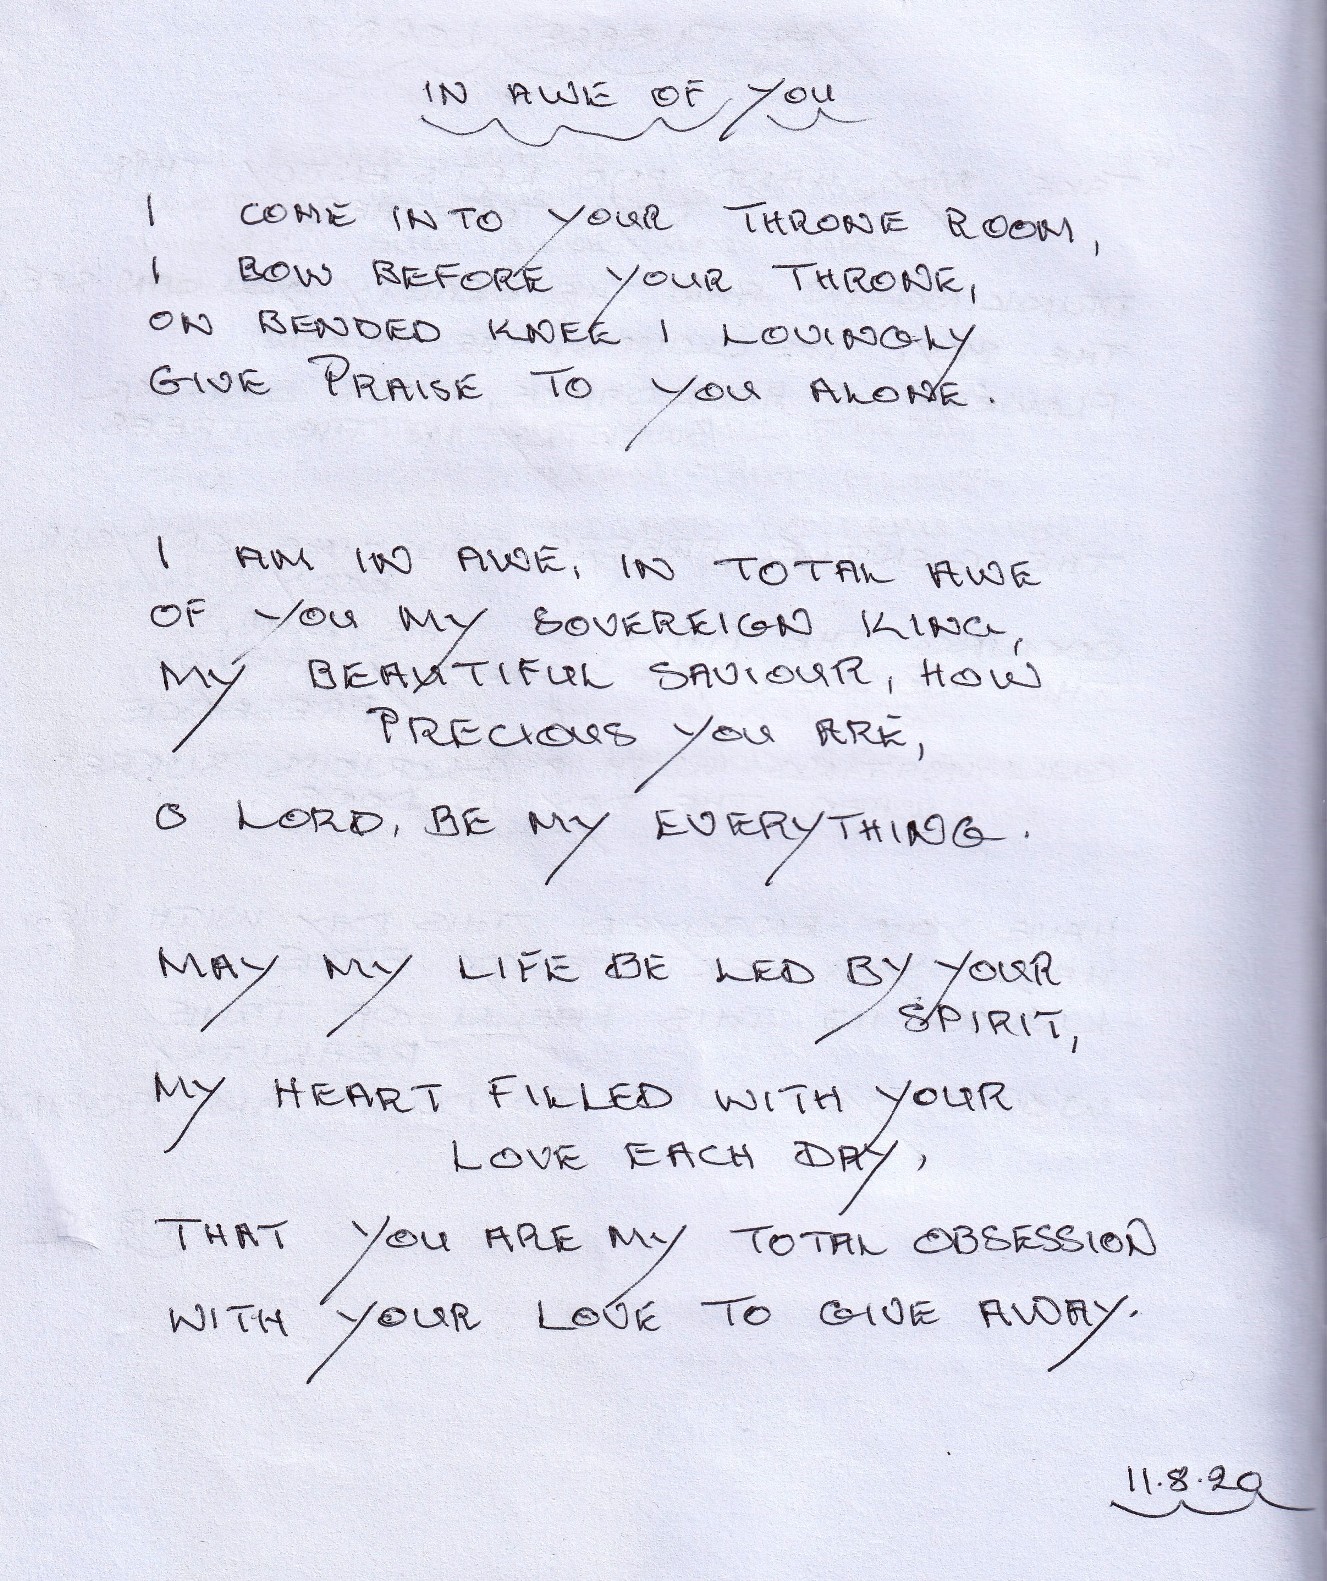 IN AWE OF YOU
I COME INTO YOUR THRONE ROOM,
I BOW BEFORE YOUR THRONE,
ON BENDED KNEE I LOVINGLY
GIVE PRAISE TO YOU ALONE.
I AM IN AWE, IN TOTAL AWE
OF YOU MY SOVEREIGN KING,
MY BEAUTIFUL SAVIOUR, HOW
PRECIOUS YOU ARE,
O LORD, BE MY EVERYTHING.
MAY MY LIFE BE LED BY YOUR
SPIRIT,
MY HEART FILLED WITH YOUR
LOVE EACH DAY,
THAT YOU ARE MY TOTAL OBSESSION
WITH YOUR LOVE TO GIVE AWAY.
11.8.20